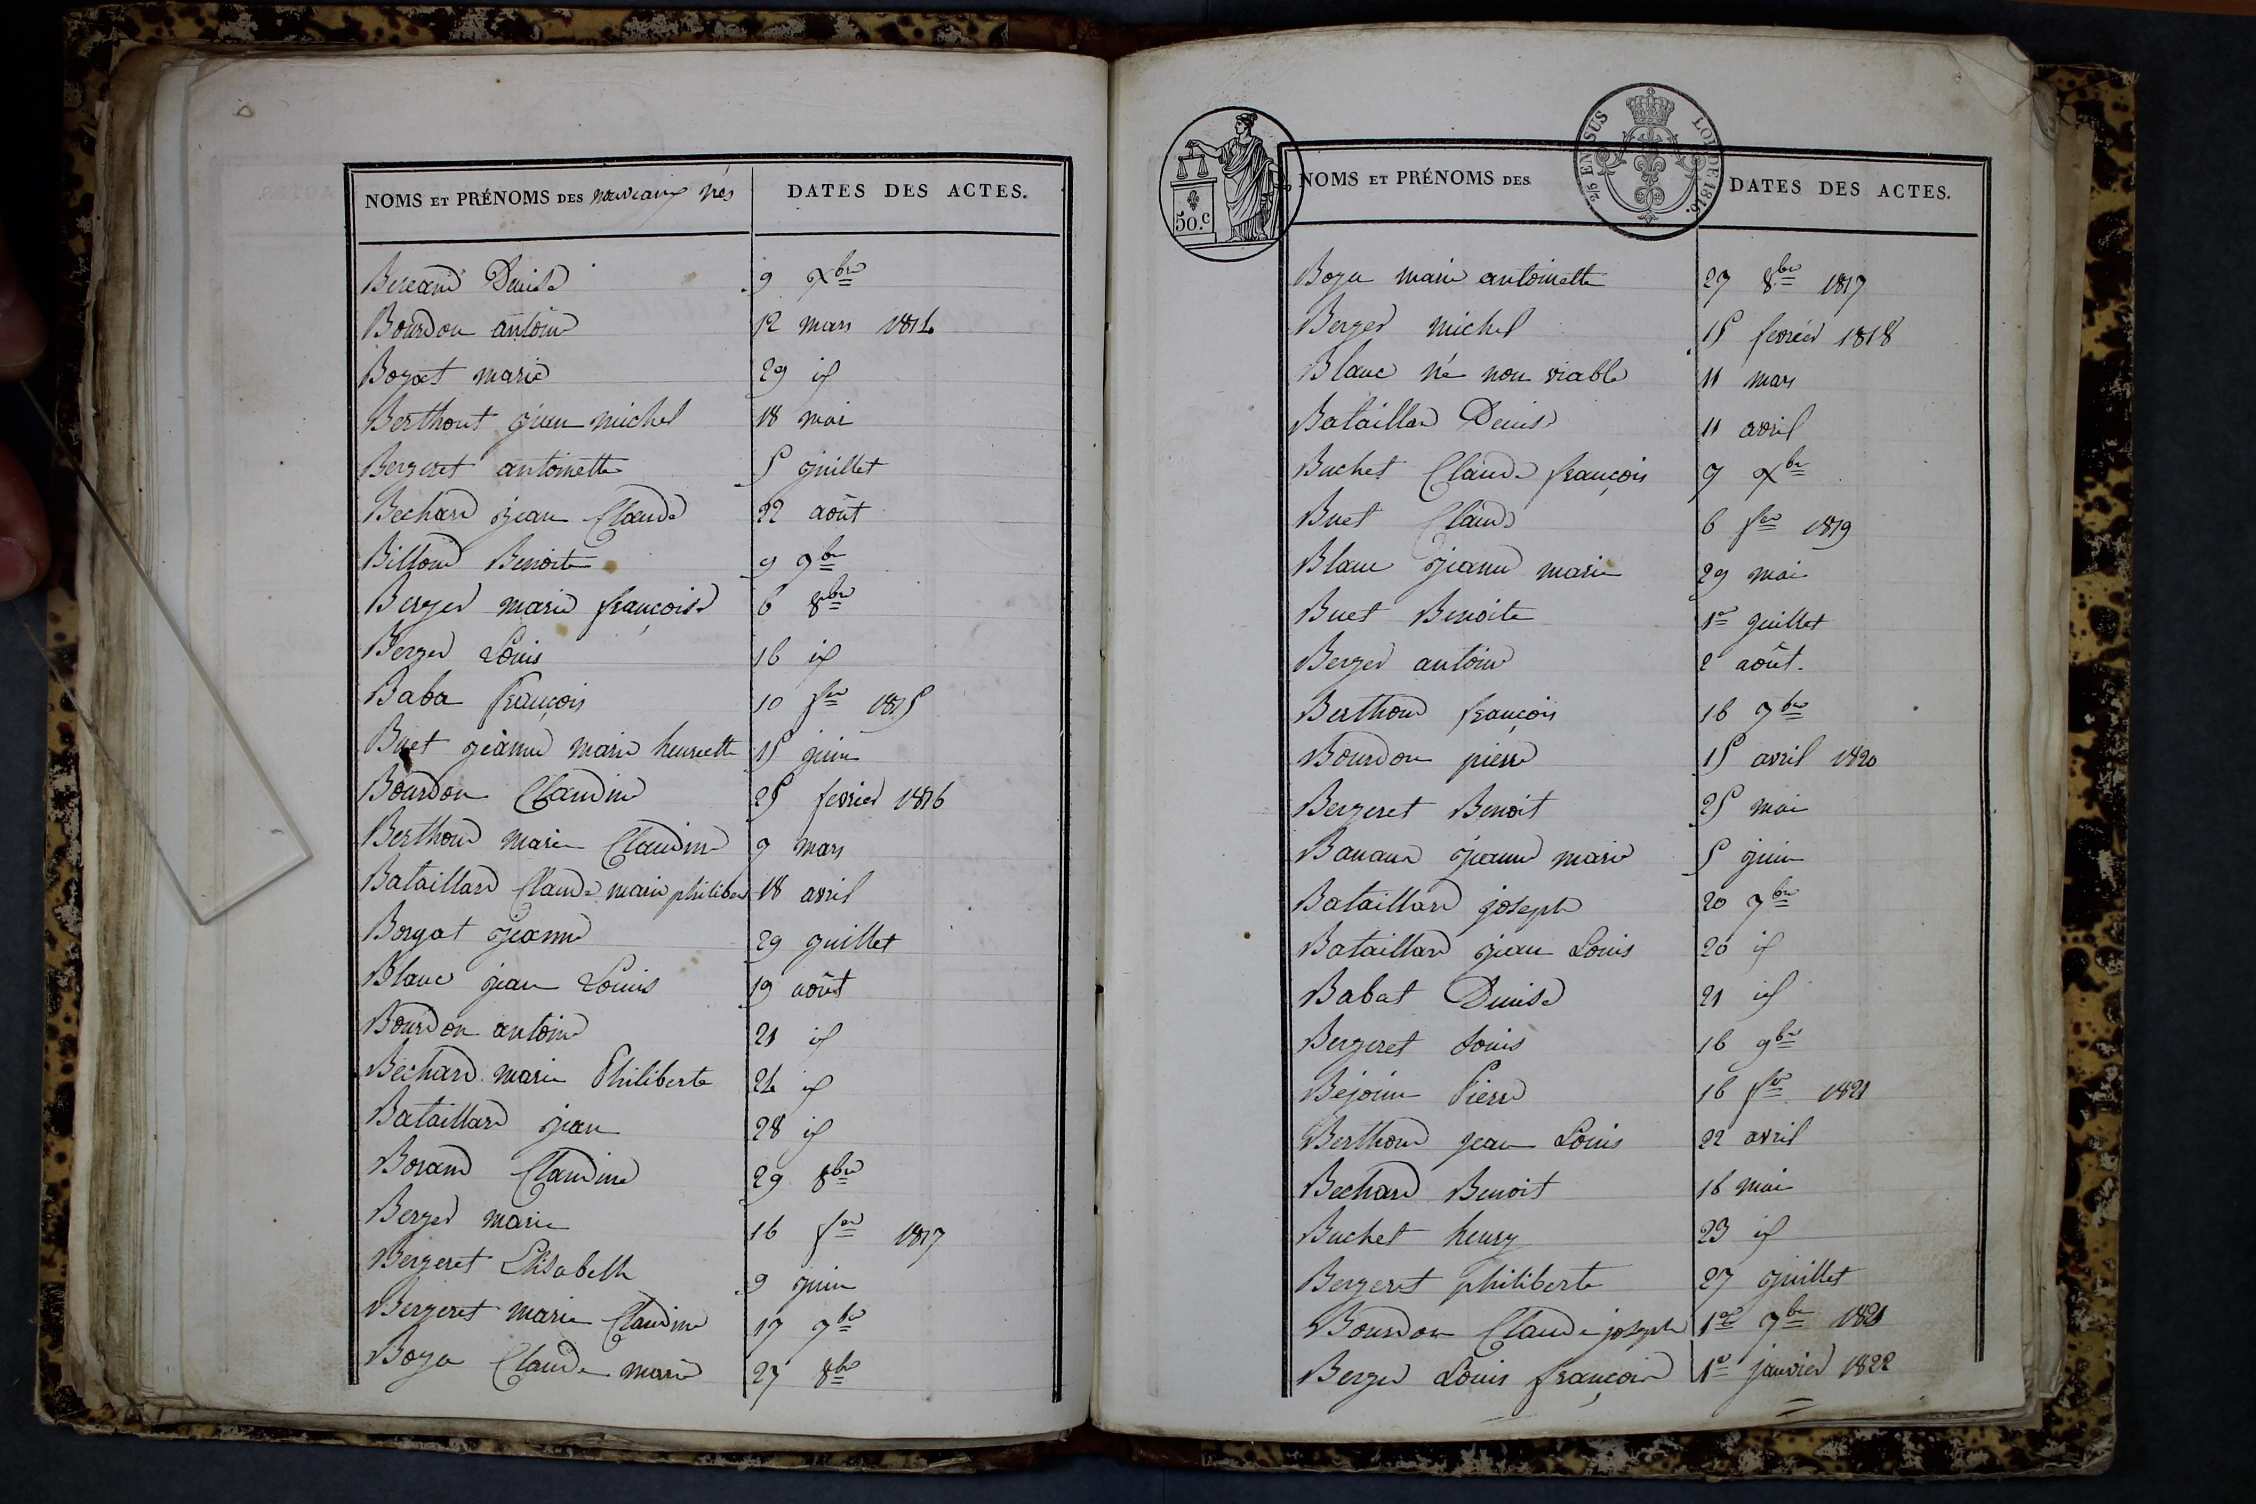 NOMS ET PRÉNOMS DES nouveaux nés DATES DES ACTES.
Bereard Denise 9 Xbre
Bourdon antoine 12 mars 1814
Boyat marie 29 id
Berthout jean michel 18 mai
Bergeret antoinette 5 juillet
Bechard jean Claude 22 août
Billoud Benoite 9 9bre
Berger marie françoise 6 8bre
Berger Louis 16 id
Baba françois 10 fer 1815
Buet jeanne marie henriette 15 juin
Bourdon Claudine 25 fevrier 1816
Berthoud marie Claudine 9 mars
Bataillard Claude marie philibert 18 avril
Borgat jeanne 29 juillet
Blanc jean Louis 19 août
Bourdon antoine 21 id
Bechard marie Philiberte 24 id
Bataillard jean 28 id
Borand Claudine 29 8bre
Berger marie 16 fer 1817
Bergeret Elisabeth 9 juin
Bergeret marie Claudine 17 7bre
Boya Claude marie 27 8bre
50.c
2/5 EN SUS
LOI DE 1816.
NOMS ET PRÉNOMS DES DATES DES ACTES.
Boya marie antoinette 27 8bre 1817
Berger michel 15 fevrier 1818
Blanc né non viable 11 mars
Bataillar Denise 11 avril
Buchet Claude françois 7 Xbre
Buet Claude 6 fer 1819
Blanc jeanne marie 29 mai
Buet Benoite 1er juillet
Berger antoine 2 août
Berthoud françois 16 7bre
Bourdon pierre 15 avril 1820
Bergeret Benoit 25 mai
Banana jeanne marie 5 juin
Bataillard joseph 20 7bre
Bataillard jean Louis 20 id
Babat Denise 21 id
Bergeret Louis 16 9bre
Bejouin Pierre 16 fer 1821
Berthoud jean Louis 22 avril
Bechard Benoit 16 mai
Buchet henry 23 id
Bergeret philiberte 27 juillet
Bourdon Claude joseph 1er 7bre 1821
Berger Louis françois 1er janvier 1822